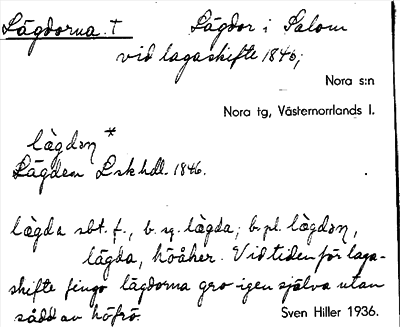 Lägdorna. † Lägdor i Salom
vid lagaskifte 1846;
Nora s:n
Nora tg, Västernorrlands l.
lägdɔn *
Lägden Lskhdl. 1846.
lägda sbt. f., b. sg. lägda; b. pl. lägdɔn,
lägda, höåker. Vid tiden för laga-
skifte fingo lägdorna gro igen själva utan
sådd av höfrö.
Sven Hiller 1936.